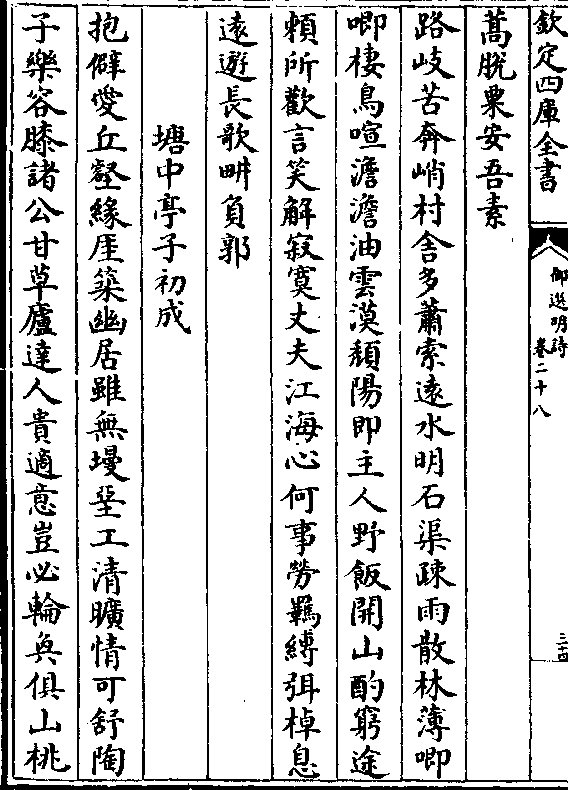 欽定四庫全書
御選明詩
卷二十八
三十四
蒿脫粟安吾素
路岐苦奔峭村舍多蕭索遠水明石渠疎雨散林薄唧
唧棲鳥喧澹澹油雲漠頹陽即主人野飯開山酌窮途
賴所歡言笑解寂寞丈夫江海心何事勞羈縛弭棹息
遠遊長歌畊負郭
塘中亭子初成
抱僻愛丘壑緣厓築幽居雖無墁堊工清曠情可舒陶
子樂容膝諸公甘草廬達人貴適意豈必輪奐俱山桃